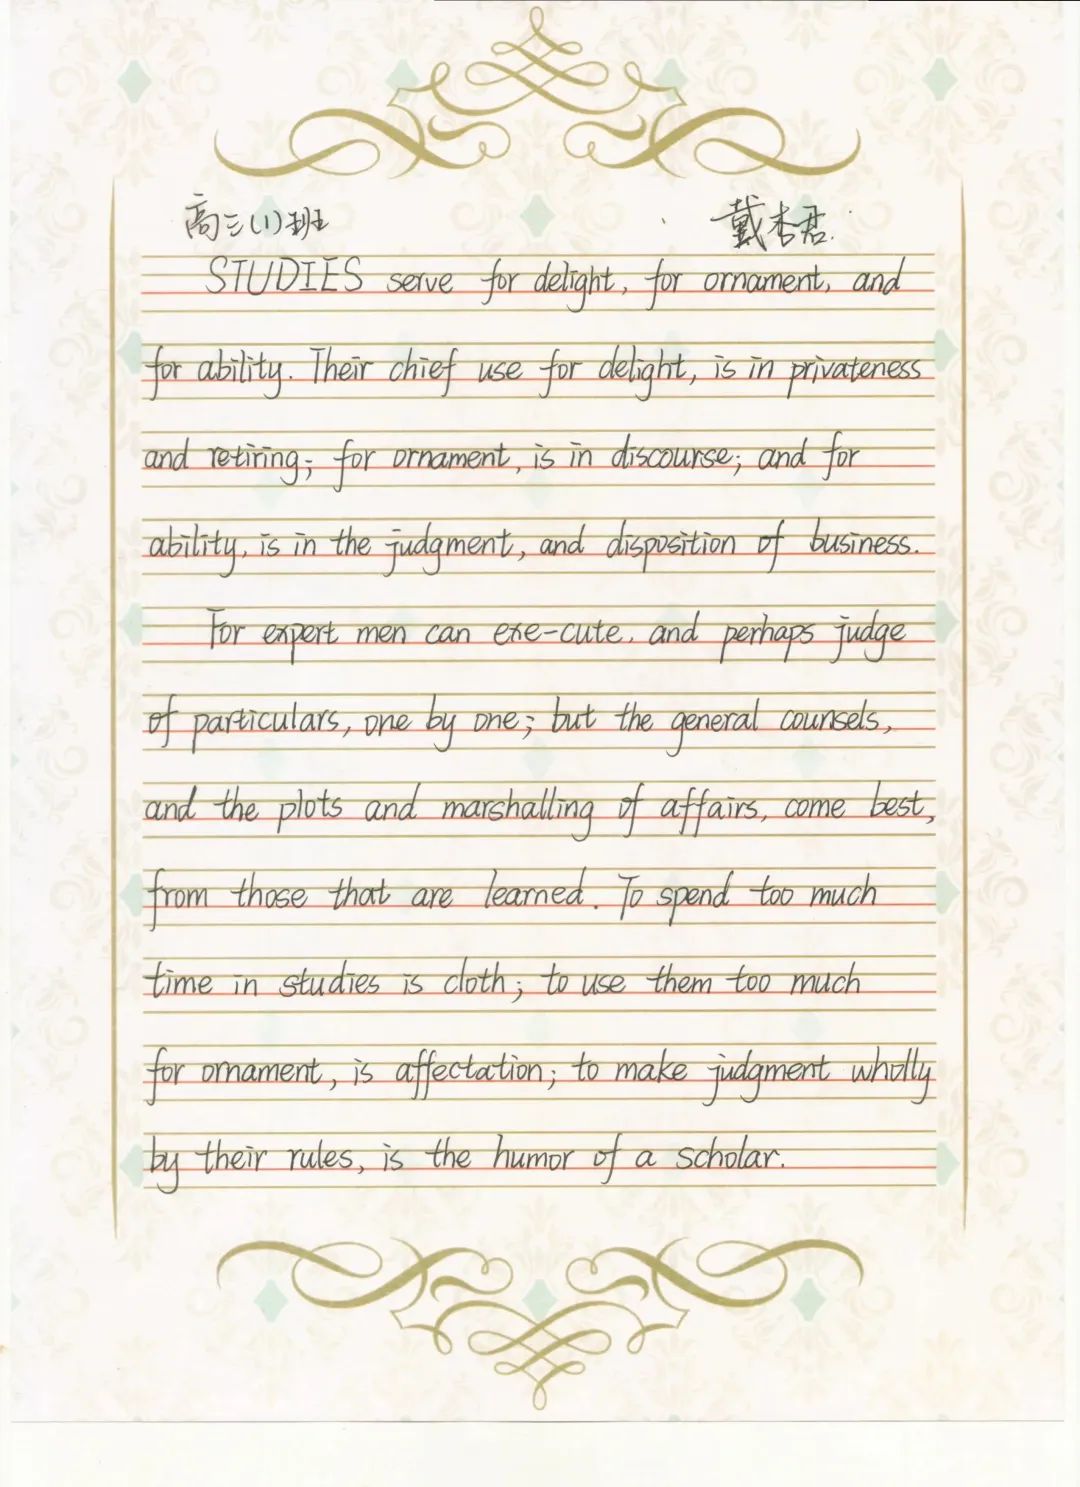 高三(1)班 戴杏君.
STUDIES serve for delight, for ornament, and
for ability. Their chief use for delight, is in privateness
and retiring; for ornament, is in discourse; and for
ability, is in the judgment, and disposition of business.
For expert men can exe-cute, and perhaps judge
of particulars, one by one; but the general counsels,
and the plots and marshalling of affairs, come best,
from those that are learned. To spend too much
time in studies is cloth; to use them too much
for ornament, is affectation; to make judgment wholly
by their rules, is the humor of a scholar.